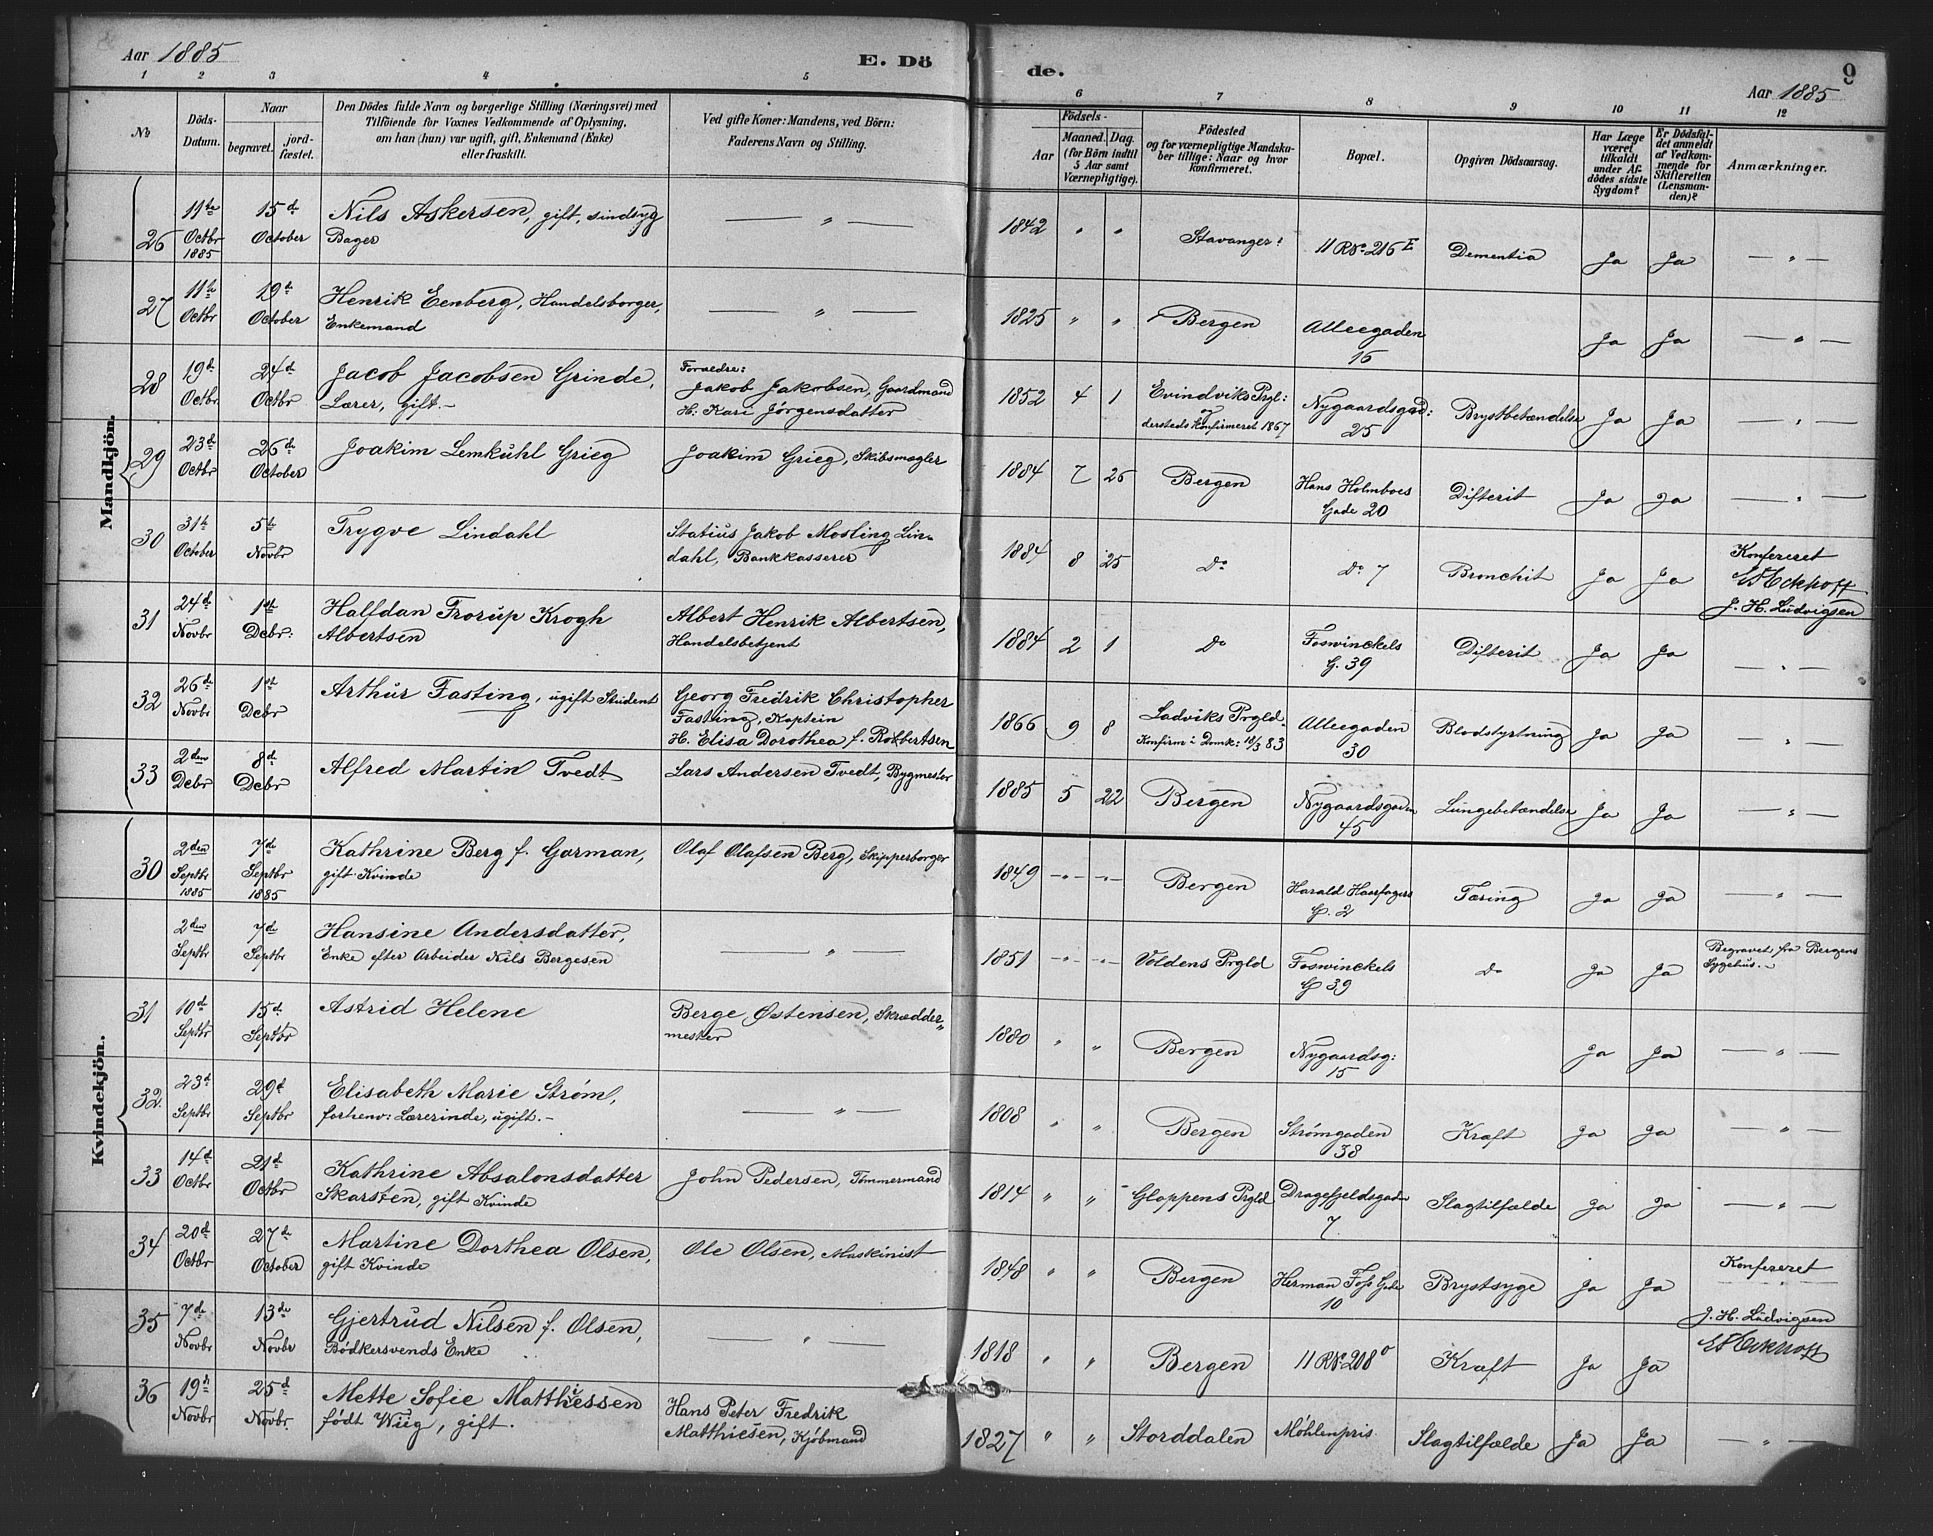 Aar 1885
E. Dö
de.
9
Aar 1885
1 2 3 4 5
6 7 8 9 10 11 12
No
Döds-
Datum.
Naar
begravet.
jord-
fæstet.
Den Dödes fulde Navn og borgerlige Stilling (Næringsvei) med
Tilföiende for Voxnes Vedkommende af Oplysning,
om han (hun) var ugift, gift, Enkemand (Enke)
eller fraskilt.
Ved gifte Koner: Mandens, ved Börn:
Faderens Navn og Stilling.
Födsels-
Aar
Maaned. Dag.
(for Börn indtil
5 Aar samt
Værnepligtige).
Födested
og for værnepligtige Mandska-
ber tillige: Naar og hvor
konfirmeret.
Bopæl.
Opgiven Dödsaarsag.
Har Læge
været
tilkaldt
under Af-
dödes sidste
Sygdom?
Er Dödsfal-
det anmeldt
af Vedkom-
mende for
Skifteretten
(Lensman-
den)?
Anmærkninger.
Mandkjön.
26 11te Octbr 1885 15d October Nils Askersen, gift, sindsyg
Bager
— " — 1842 " " Stavanger! 11 R No 216 E Dementia Ja Ja — " —
27 11te Octbr 19d October Henrik Eenberg, Handelsborger,
Enkemand
— " — 1825 " " Bergen Alleegaden
16
Ja Ja — " —
28 19d Octbr 24d Octbr Jacob Jacobsen Grinde,
Lærer, gift.-
Forældre:
Jakob Jakobsen, Gaardmand
H. Kari Jörgensdatter
1852 4 1 Evindviks Prgl:
og
dersteds Konfirmeret 1867
Nygaardsgad:
25
Brystbetændelse Ja Ja — " —
29 23d Octbr 26d October Joakim Lemkuhl Grieg
Joakim Grieg, Skibsmægler
1884 7 26 Bergen Hans Holmboes
Gade 20
Difterit Ja Ja — " —
30 31te October 5te Novbr Trygve Lindahl
Statius Jakob Mosling Lin-
dahl, Bankkasserer
1884 8 25 Do Do 7 Bronchit Ja Ja Konfereret
J. H. Ludvigsen
31 24d Novbr 1ste Debr: Halfdan Frorup Krogh
Albertsen
Albert Henrik Albertsen,
Handelsbetjent
1884 2 1 Do Foswinckels
G. 39
Difterit Ja Ja — " —
32 26d Novbr 1ste Debr Arthur Fasting, ugift Student
Georg Fredrik Christopher
Fasting, Kaptein
H. Elisa Dorothea f. Robbertsen
1866 9 8 Ladviks Prgld.
Konfirm i Domk: 18/3 83
Alleegaden
30
Blodstyrtning Ja Ja — " —
33 2den Debr 8de Debr Alfred Martin Tvedt
Lars Andersen Tvedt, Bygmester
1885 5 22 Bergen Nygaardsgaden
45
Lungebetændelse Ja Ja — " —
Kvindekjön.
30 2den Septbr 1885 7de Septbr 1885 Kathrine Berg f. Gorman,
gift Kvinde
Olaf Olafsen Berg, Skipperborger
1849 -"- -"- Bergen Harald Haarfagers
G. 2
Tæring Ja Ja — " —
2den Septbr 7de Septbr Hansine Andersdatter,
Enke efter Arbeider Nils Bergesen
— " — 1851 -"- -"- Voldens Prgld Foswinckels
G 39
Do Ja Ja Begravet fra Bergens
Sygehus.-
31 10d Septbr 15d Septbr Astrid Helene
Berge Østensen, Skrædder-
mester
1880 " " Bergen Nygaardsg:
15
Ja Ja — " —
32. 23d Septbr 29d Septbr Elisabeth Marie Strøm,
forhenv: Lærerinde, ugift.-
— " — 1808 " " Bergen Strømgaden
38
Kræft Ja Ja — " —
33 14d Octbr 21d Octbr Kathrine Absalonsdatter
Skarsten, gift Kvinde
John Pedersen, Tömmermand
1814 " " Gloppens Prgld Dragefjeldsgaden
7.
Slagtilfælde Ja Ja — " —
34 20d Octbr 27de October Martine Dorthea Olsen,
gift Kvinde
Ole Olsen, Maskinist
1848 " " Bergen Herman Foss Gade
10
Brystsyge Ja Ja Konfereret
J. H. Ludvigsen
35 7de Novbr 13de Novbr Gjertrud Nilsen f. Olsen,
Bødkersvends Enke
— " — 1818 " " Bergen 11 R No 208 o Kræft Ja Ja
36 19de Novbr 25de Novbr. Mette Sofie Matthiessen
født Wiig, gift.
Hans Peter Fredrik
Matthiesen, Kjöbmand
1827 " " Storddalen Møhlenpris Slagtilfælde Ja Ja — " —